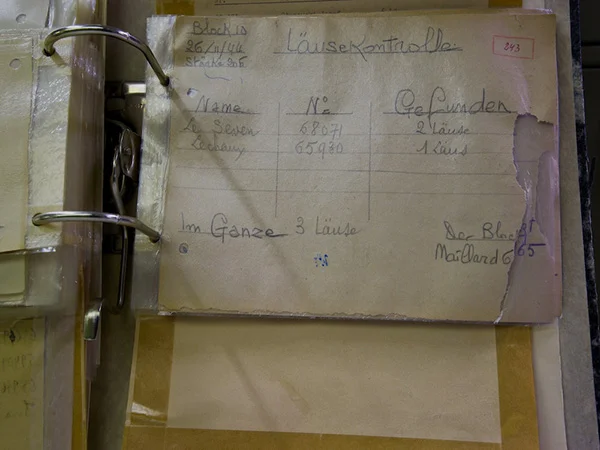 Block 10
26/11/44
Stärke 205
Läusekontrolle
243
Name N° Gefunden
Le Seven 68071 2 Läuse
65930 1 Läus
Im Ganze 3 Läuse
Der Block
Maillard 65